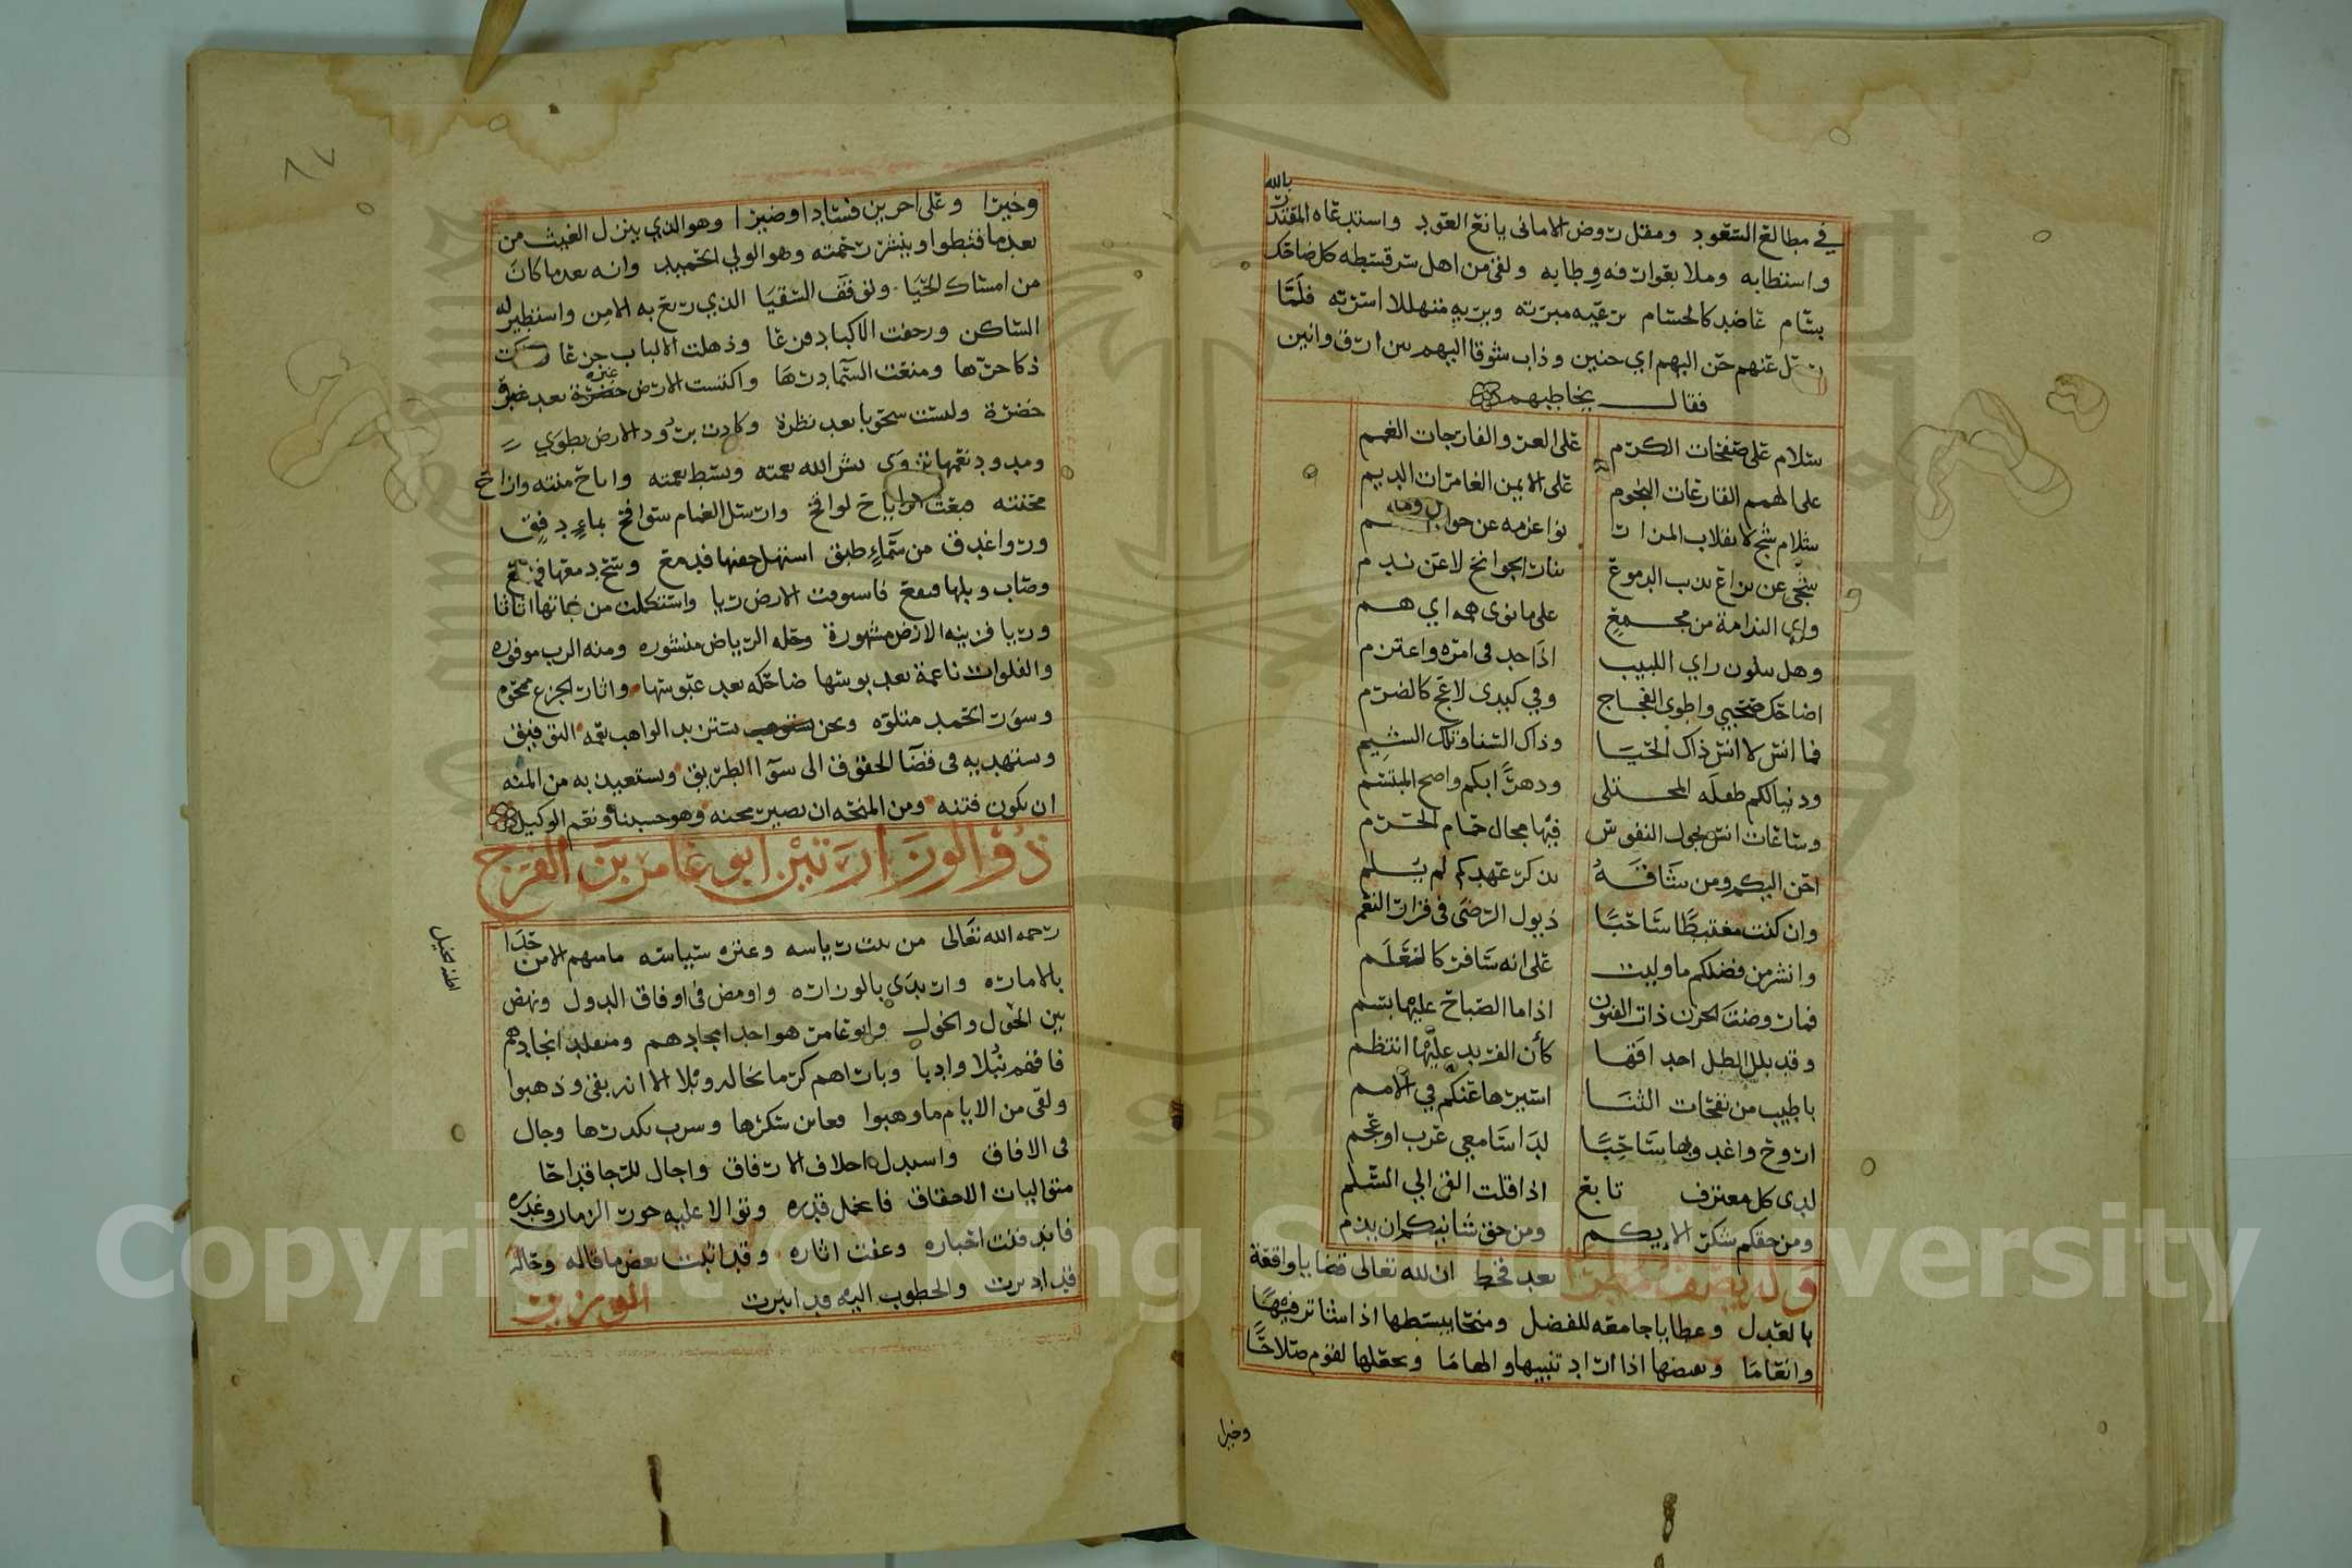 بالله
في مطالع السعود ومقل روض الاماني يانع العود واستدعاه المقتدر
واستطابه وملا بعوارفه وطابه ولقي من اهل سرقسطه كل ضاحك
بسام غاضد كالحسام يرعيه مبرته ويريه متهللا اسرته فلما
عنهم حن اليهم اي حنين وذاب شوقا اليهم بين ارق وانين
فقال يخاطبهم
سلام على صفحات الكرم على الغرر الفارجات الغمم
على الهمم الفارعات النجوم على الايمن الغامرات الديم
سلام شج لانقلاب المزار نوا عزمه عن
شجي عن يراع يذب الدموع بنار الجوانح لا عن ندم
واي الندامة من مجمع على ما نوى همه اي هم
وهل يبلون راي اللبيب اذا جد في امره واعتزم
اضاحك صحبي واطوي الفجاج وفي كبدي لاعج كالضرم
فما انس لا انس ذاك الحيا وذاك السنا وتلك الشيم
ودنيا لكم طفله المجتلى ودهرا بكم واضح المبتسم
وساعات انس تجول النفوس فيها مجال حمام الحرم
احن اليكم ومن شاقه يذكر عهدكم لم يلم
وان كنت مغتبطا ساحبا ذيول الرضى في قرار النعم
وانشر من فضلكم ما وليت على انه سافر كالعلم
فما روضة الحزن ذات الفنون اذا ما الصباح عليها بسم
وقد بلل الطل احداقها كأن الفريد عليها انتظم
باطيب من نفحات الثنا اسيرها عنكم في الامم
اروح واغدو بها ساحبا لدا سامعي عرب او عجم
لدى كل معترف تابع اذا قلت القي الي السلم
ومن حقكم شكر الايكم ومن حق شانيكم ان يذم
وله يصف مطرا بعد قحط ان لله تعالى قضايا واقعة
بالعدل وعطايا جامعه للفضل ومنحا يبسطها اذا شا ترفيها
وانعاما ويقبضها اذا اراد تنبيها والهاما ويجعلها لقوم صلاحا
وخيرا
٨٧
وخيرا وعلى اخرين فسادا وضيرا وهو الذي ينزل الغيث من
بعد ما قنطوا وينشر رحمته وهو الولي الحميد وانه بعد ما كان
من امساك الحيا وتوقف السقيا الذي ريع به الامن واستطير له
الساكن ورجفت الاكباد فزعا وذهلت الالباب جزعا
ذكا حرها ومنعت السما درها واكتست الارض غبره خضرة بعد
خضرة ولبست شحوبا بعد نظرة وكادت برود الارض تطوي
ومدود نعمها تزوى نشر الله نعمته وبسط نعمته واباح منته وازاح
محنته فبعث الرياح لواقح وارسل الغمام سوافح بماء دفق
وروا غدق من سماء طبق استهل جفنها فدمع وسح دمعها فهمع
وصاب وبلها فنقع فاستوفت الارض ريا واستكملت من نباتها اثاثا
وريا فزينه الارض مشهورة وحله الرياض منشوره ومنه الرب موفوره
والقلوب ناعمة بعد بوسها ضاحكه بعد عبوسها واثار الجزع ممحوه
وسور الحمد متلوه ونحن نستزيد الواهب نعمه التوفيق
ونستهديه في قضا الحقوق الى سوا الطريق ونستعيذ به من المنه
ان تكون فتنه ومن المنحه ان تصير محنه وهو حسبنا ونعم الوكيل
ذو الوزارتين ابو عامر بن الفرج
رحمه الله تعالى من بيت رياسه وعتره سياسه ما منهم الا من تحدا
بالاماره وارتدى بالوزاره واومض في افاق الدول ونهض
بين الخول والخول وابو عامر هو احد امجادهم ومتقلد انجادهم
فاقهم نبلا وادبا وباراهم كرما تخاله وبلا الا انه بقي وذهبوا
ولقي من الايام ما وهبوا فعاين تنكرها وشرب تكدرها وجال
في الافاق واستدل اخلاف الارفاق واجال للرجا قداحا
متواليات الاخفاق فاخمل قدره وتوالا عليه جور الزمان وغدره
فاندفنت اخباره وعفت اثاره وقد اثبت بعض ما قاله وحاله
قد ادبرت والخطوب اليه قد انبرت